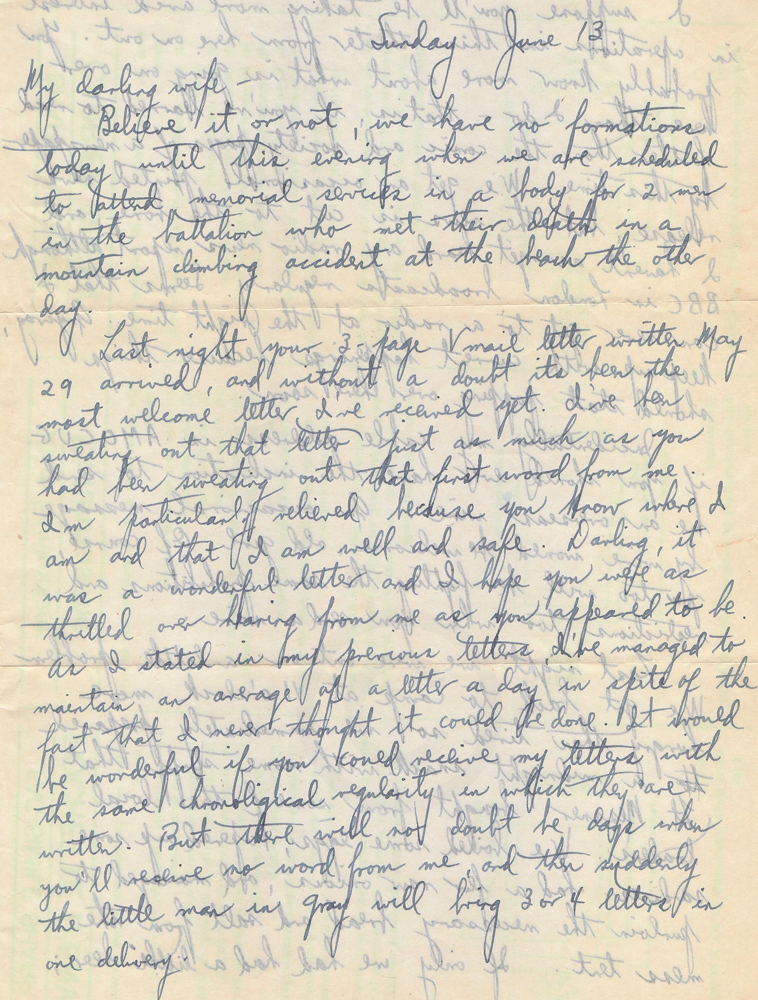 Sunday June 13
My darling wife -
Believe it or not, we have no formations
today until this evening when we are scheduled
to attend memorial services in a body for 2 men
in the battalion who met their death in a
mountain climbing accident at the beach the other
day.
Last night your 3-page Vmail letter written May
29 arrived, and without a doubt its been the
most welcome letter I've received yet. I've been
sweating out that letter just as much as you
had been sweating out that first word from me.
I'm particularly relieved because you know where I
am and that I am well and safe. Darling, it
was a wonderful letter and I hope you were as
thrilled over hearing from me as you appeared to be.
As I stated in my previous letters, I've managed to
maintain an average of a letter a day in spite of the
fact that I never thought it could be done. It would
be wonderful if you could receive my letters with
the same chronoligical regularity in which they are
written. But there will no doubt be days when
you'll receive no word from me, and then suddenly
the little man in gray will bring 3 or 4 letters in
one delivery.